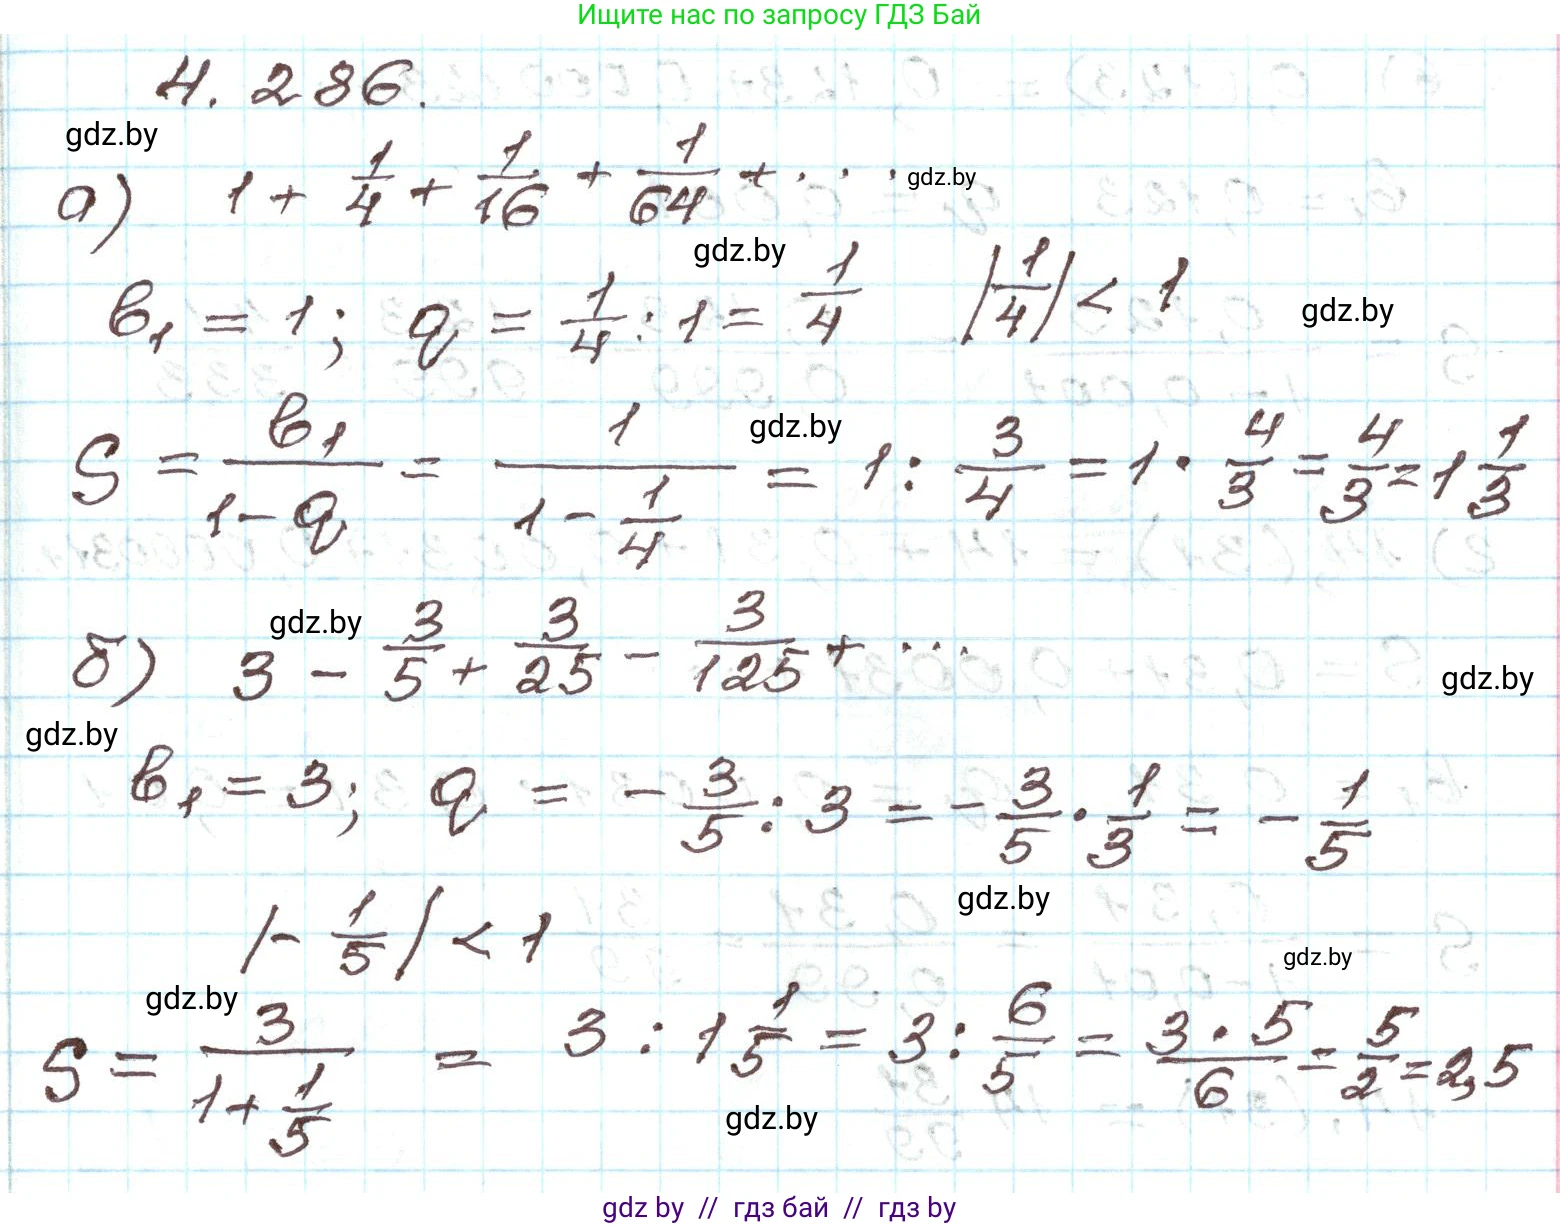 Ищите нас по запросу ГДЗ Бай
4.286.
gdz.by
а) 1 + 1/4 + 1/16 + 1/64 + ...
gdz.by
gdz.by
b₁ = 1; q = 1/4 : 1 = 1/4 |1/4| < 1
gdz.by
S = b₁/(1-q) = 1/(1 - 1/4) = 1 : 3/4 = 1 · 4/3 = 4/3 = 1 1/3
gdz.by
gdz.by
б) 3 - 3/5 + 3/25 - 3/125 + ...
gdz.by
gdz.by
b₁ = 3; q = - 3/5 : 3 = - 3/5 · 1/3 = - 1/5
gdz.by
|- 1/5| < 1
gdz.by
gdz.by
S = 3/(1 + 1/5) = 3 : 1 1/5 = 3 : 6/5 = (3 · 5)/6 = 5/2 = 2,5
gdz.by
gdz by // гдз бай // гдз by